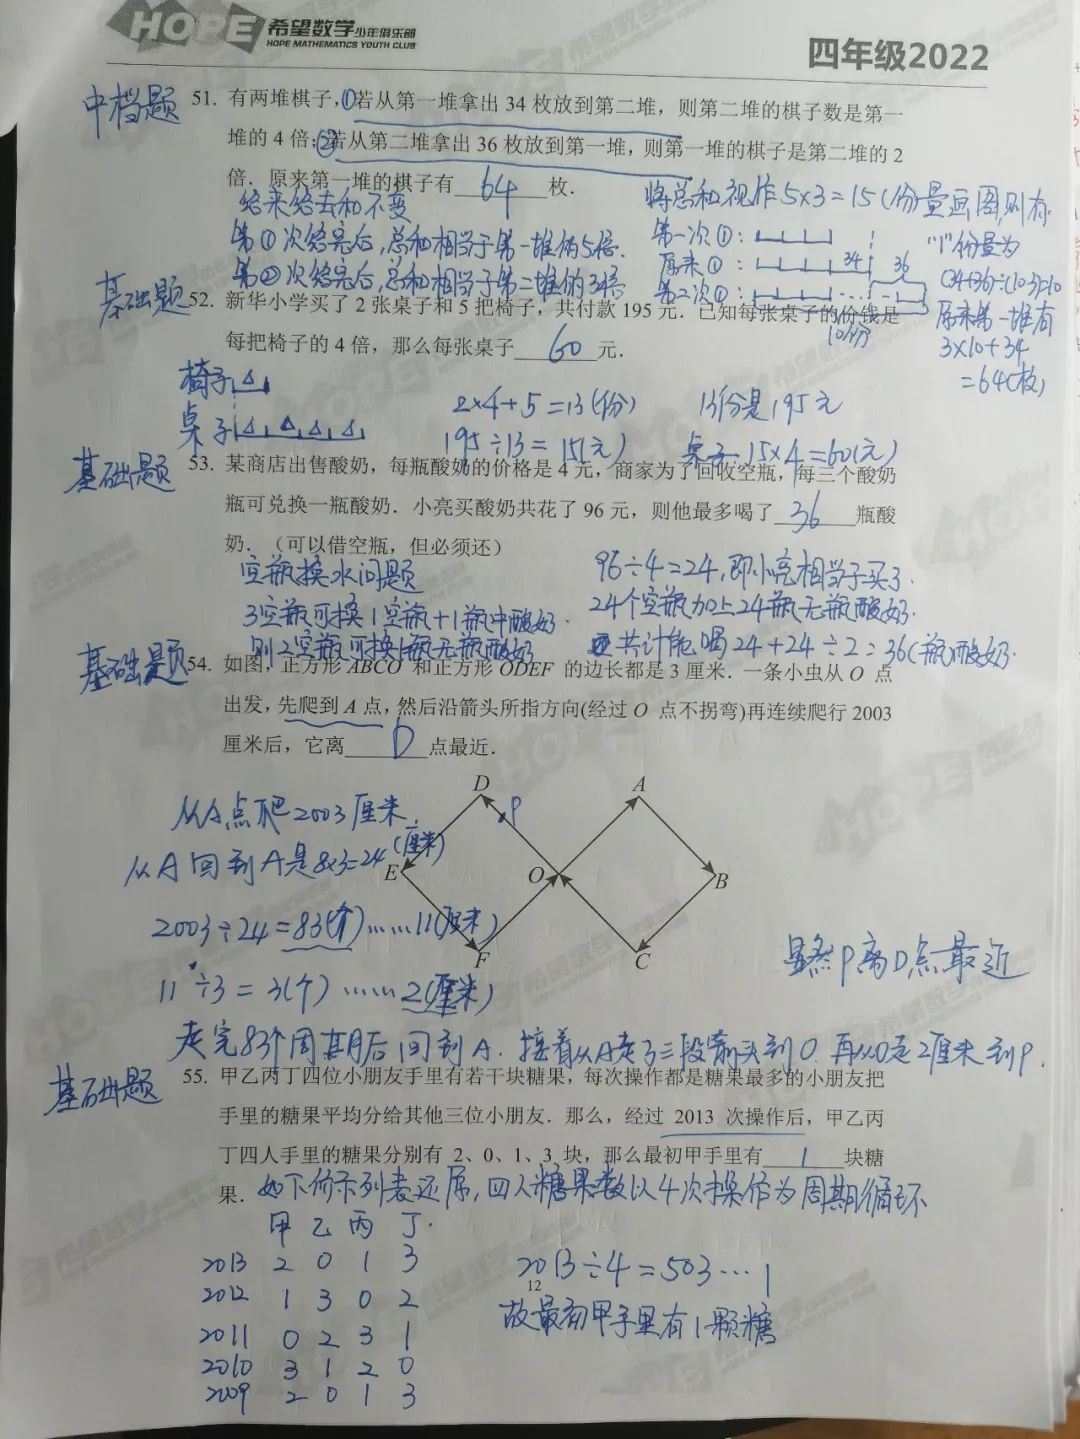 HOPE 希望数学少年俱乐部
HOPE MATHEMATICS YOUTH CLUB
四年级2022
中档题
51. 有两堆棋子，①若从第一堆拿出 34 枚放到第二堆，则第二堆的棋子数是第一
堆的 4 倍；②若从第二堆拿出 36 枚放到第一堆，则第一堆的棋子是第二堆的 2
倍．原来第一堆的棋子有 64 枚．
给来给去和不变
第①次给完后，总和相当于第一堆的5倍．
第②次给完后，总和相当于第二堆的3倍
将总和视作5×3=15(份)量画图，则有
第一次①：
原来①： 34 36
第二次①：
10份
"1"份量为
(34+36)÷(10-3)=10
原来第一堆有
3×10+34
=64(枚)
基础题
52. 新华小学买了 2 张桌子和 5 把椅子，共付款 195 元．已知每张桌子的价钱是
每把椅子的 4 倍，那么每张桌子 60 元．
椅子
桌子
2×4+5=13(份) 13份是195元
195÷13=15(元) 桌子 15×4=60(元)
基础题
53. 某商店出售酸奶，每瓶酸奶的价格是 4 元，商家为了回收空瓶，每三个酸奶
瓶可兑换一瓶酸奶．小亮买酸奶共花了 96 元，则他最多喝了 36 瓶酸
奶．（可以借空瓶，但必须还）
空瓶换水问题
3空瓶可换1空瓶+1瓶中酸奶．
则2空瓶可换1瓶无瓶酸奶
96÷4=24，即小亮相当于买了
24个空瓶加上24瓶无瓶酸奶．
共计能喝24+24÷2=36(瓶)酸奶．
基础题
54. 如图，正方形 ABCO 和正方形 ODEF 的边长都是 3 厘米．一条小虫从 O 点
出发，先爬到 A 点，然后沿箭头所指方向(经过 O 点不拐弯)再连续爬行 2003
厘米后，它离 D 点最近．
D P A
E O B
F C
从A点爬2003厘米．
从A回到A是8×3=24(厘米)
2003÷24=83(个)……11(厘米)
11÷3=3(个)……2(厘米)
显然P离D点最近
走完83个周期后回到A．接着从A走了三段箭头到O．再从O走2厘米到P．
基础题
55. 甲乙丙丁四位小朋友手里有若干块糖果，每次操作都是糖果最多的小朋友把
手里的糖果平均分给其他三位小朋友．那么，经过 2013 次操作后，甲乙丙
丁四人手里的糖果分别有 2、0、1、3 块，那么最初甲手里有 1 块糖
果．
如下所示列表还原，四人糖果数以4次操作为周期循环
甲 乙 丙 丁．
2013 2 0 1 3
2012 1 3 0 2
2011 0 2 3 1
2010 3 1 2 0
2009 2 0 1 3
2013÷4=503…1
12
故最初甲手里有1颗糖